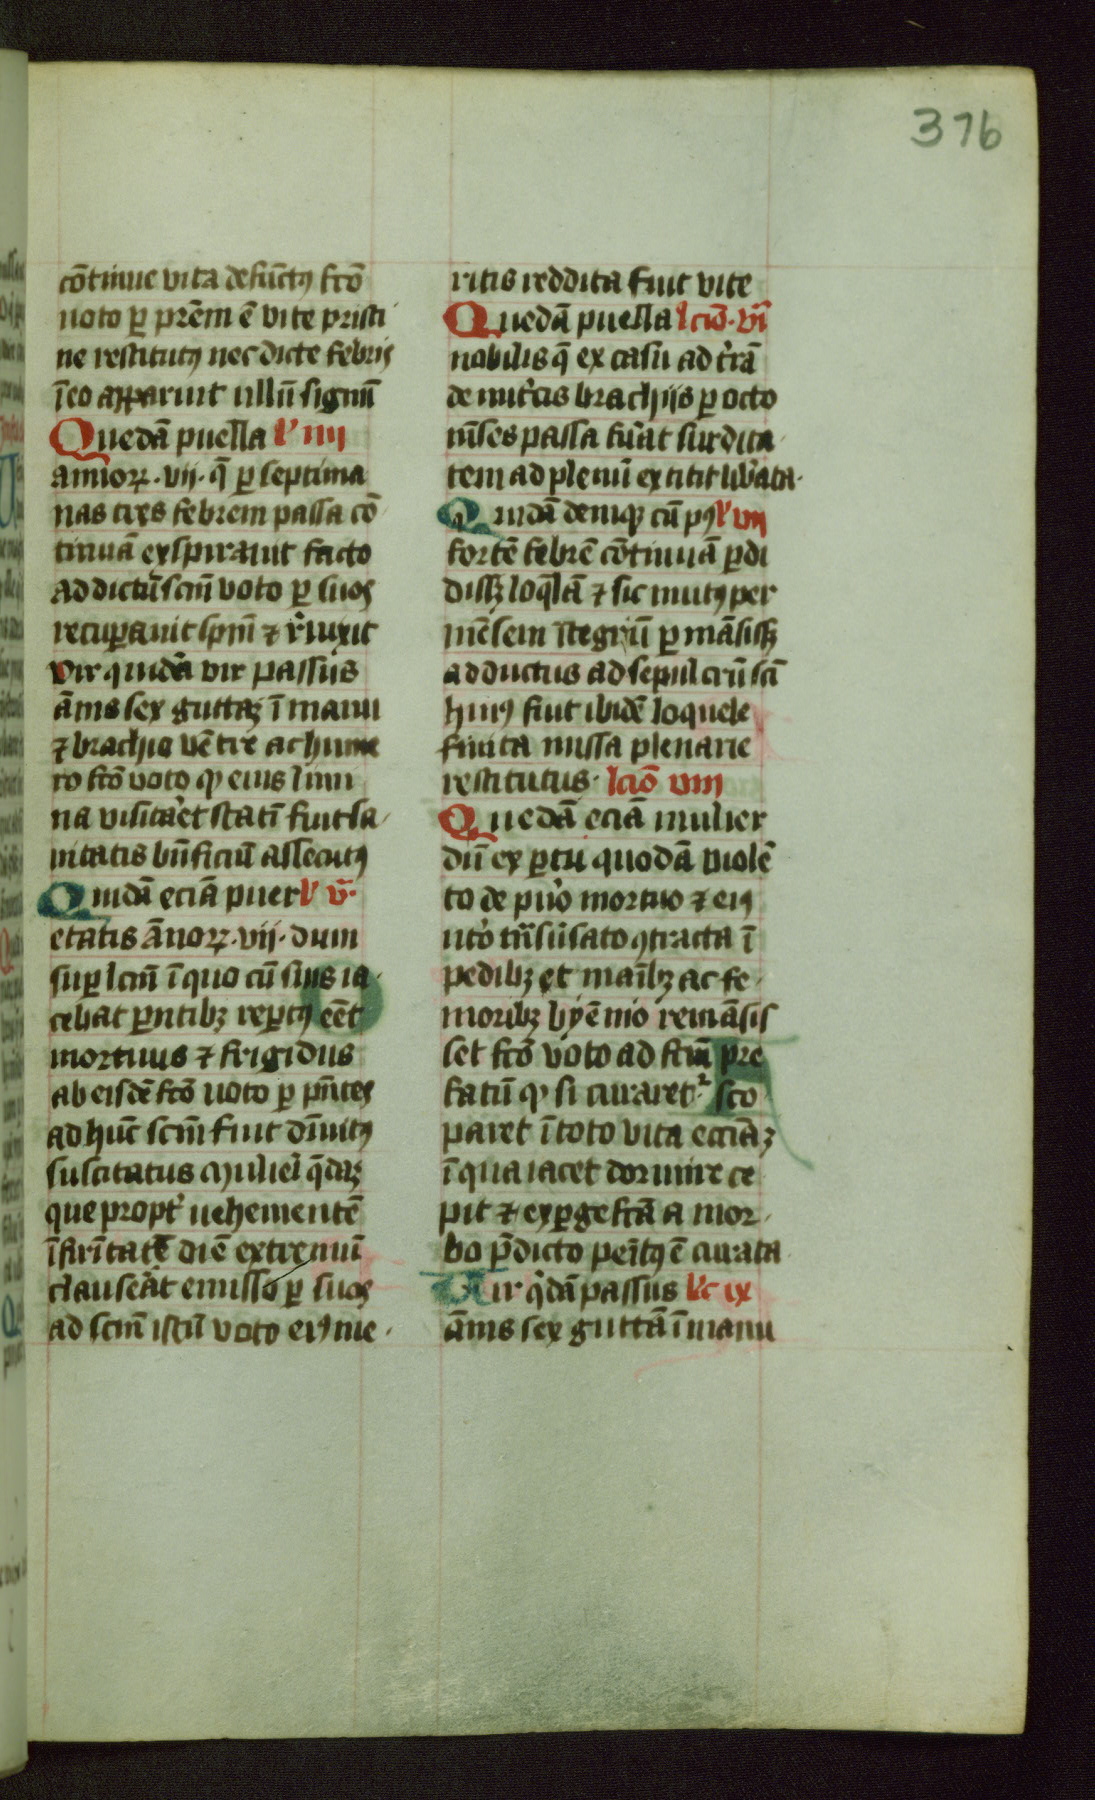 376
cōtinue vita defūctꝰ fcō
uoto ꝑ prēm ē vite pristi
ne restitutꝰ nec dicte febris
ī eo apparuit ullū signū
Quedā puella lc̄ iiii
annoꝝ · vii · q̄ ꝑ septima
nas tres febrem passa cō
tinuā exspirauit facto
ad dictū scm̄ voto ꝑ suos
recuꝑauit spm̄ ⁊ r̄uixit
Vir quidā vir passus
ānis sex guttaꝫ ī manu
⁊ brachio vētre ac hume
ro fcō voto qꝫ eius limi
na visitaret statī fuit sa
nitatis bn̄ficiū assecutꝰ
Quidā eciā puer lc̄ v̄
etatis ānoꝝ · vii · dum
suꝑ lcm̄ ī quo cū suis ia
cebat ꝑntibꝫ reꝑtꝰ eēt
mortuus ⁊ frigidus
ab eisdē fcō uoto ꝑ pn̄tes
ad hūc scm̄ fuit dīuitꝰ
suscitatus Mulier q̄dā
que propt̄ uehementē
īfirītatē diē extremū
clauserat emisso ꝑ suos
ad scm̄ istū voto eiꝰ me
ritis reddita fuit vite
Quedā puella lcīo · vi
nobilis q̄ ex casu ad t̄rā
de nut̄cis brachijs ꝑ octo
mēses passa fūat surdita
tem ad plenū extitit libāata
Quidā deniqꝫ cū pꝰ lc̄ vii
fortē febrē cōtinuā ꝑdi
dissꝫ loq̄lā ⁊ sic mutꝰ per
mēsem ītegrū ꝑmāsissꝫ
adductus ad sepulcrū scī
huiꝰ fuit ibidē loquele
finita missa plenarie
restitutus · lcīo viii
Quedā eciā mulier
dū ex ꝑtu quodā violē
to de puero mortuo ⁊ eiꝰ
uto trāsūsato ꝯtracta ī
pedibꝫ et manībꝫ ac fe
moribꝫ byēnio remāsis
set fcō voto ad scm̄ pre
fatū qꝫ si curaretur scō
pararet ī toto vita ecciaꝫ
ī qua iacet dormire ce
pit ⁊ exꝑgefctā a mor
bo p̄dicto penitꝰ ē curata
Vir q̄dā passus lc̄ ix
ānis sex guttā ī manu